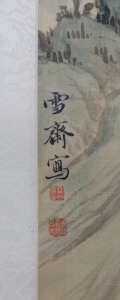 雪齋寫